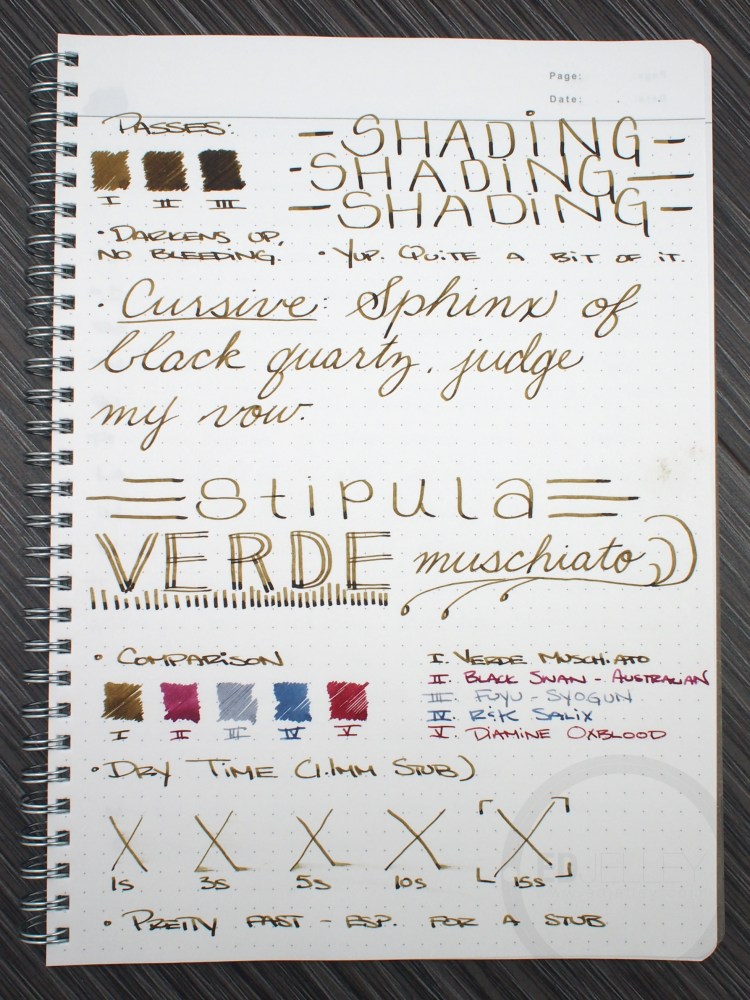 Page:
Date:
PASSES:
I II III
-SHADING-
-SHADING-
-SHADING-
• DARKENS UP,
NO BLEEDING.
• YUP. QUITE A BIT OF IT.
• Cursive: Sphinx of
black quartz, judge
my vow.
Stipula
VERDE muschiato
• COMPARISON
I II III IV V
I. VERDE MUSCHIATO
II. BLACK SWAN - AUSTRALIAN
III. FUYU - SYOGUN
IV. R&K SALIX
V. DIAMINE OXBLOOD
• DRY TIME (1.1MM STUB)
1s 3s 5s 10s 15s
ED JELLEY
• PRETTY FAST - ESP. FOR A STUB